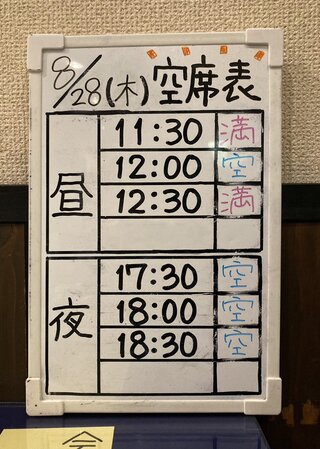 8/28(木) 空席表
昼
11:30 満
12:00 空
12:30 満
夜
17:30 空
18:00 空
18:30 空
会